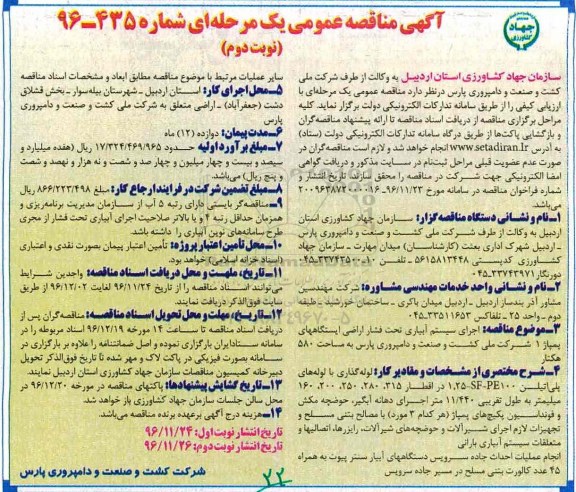 آگهی مناقصه عمومی یک مرحله‌ای شماره ۴۳۵-۹۶
(نوبت دوم)
جهاد
کشاورزی
سازمان جهاد کشاورزی استان اردبیل به وکالت از طرف شرکت ملی
کشت و صنعت و دامپروری پارس درنظر دارد مناقصه عمومی یک مرحله‌ای با
ارزیابی کیفی را از طریق سامانه تدارکات الکترونیکی دولت برگزار نماید. کلیه
مراحل برگزاری مناقصه از دریافت اسناد مناقصه تا ارائه پیشنهاد مناقصه‌گران
و بازگشایی پاکت‌ها از طریق درگاه سامانه تدارکات الکترونیکی دولت (ستاد)
به آدرس www.setadiran.Ir انجام خواهد شد و لازم است مناقصه‌گران در
صورت عدم عضویت قبلی مراحل ثبت‌نام در سایت مذکور و دریافت گواهی
امضا الکترونیکی جهت شرکت در مناقصه را محقق سازند. تاریخ انتشار و
شماره فراخوان مناقصه در سامانه مورخ ۹۶/۱۱/۲۳
می‌باشد.
۱-نام و نشانی دستگاه مناقصه‌گزار: سازمان جهاد کشاورزی استان
اردبیل به وکالت از طرف شرکت ملی کشت و صنعت و دامپروری پارس
- اردبیل شهرک اداری بعثت (کارشناسان) میدان جهاد - سازمان جهاد
کشاورزی کدپستی ۵۶۱۵۸۱۳۴۴۸ - تلفن ۱۰-۳۳۷۴۳۵۰۰-۰۴۵
دورنگار ۳۳۷۴۳۹۷۱-۰۴۵
۲-نام و نشانی واحد خدمات مهندسی مشاوره: شرکت مهندسی
مشاور آذر پندساز اردبیل - اردبیل میدان باکری - ساختمان خورشید - طبقه
دوم - واحد ۲۵ - تلفاکس ۳۳۵۱۱۶۵۳-۰۴۵
۳-موضوع مناقصه: اجرای سیستم آبیاری تحت فشار اراضی ایستگاههای
پمپاژ ۱ شرکت ملی کشت و صنعت و دامپروری پارس به مساحت ۵۸۰
هکتار
۴-شرح مختصری از مشخصات و مقادیر کار: لوله‌گذاری با لوله‌های
پلی‌اتیلن SF-PE۱۰۰-۱,۲۵ در اقطار ۳۱۵، ۲۸۰، ۲۵۰، ۲۰۰، ۱۶۰
میلیمتر به طول تقریبی ۱۱/۴۴۰ متر اجرای دهانه آبگیر، حوضچه مکش
و فونداسیون پکیج‌های پمپاژ (هر کدام ۳ مورد) با مصالح بتنی مسلح و
تجهیزات لازم اجرای شیرآلات و حوضچه‌های شیرآلات، رایزرها، اتصالیها و
متعلقات سیستم آبیاری بارانی
انجام عملیات احداث جاده سرویس دستگاههای آبیار سنتر پیوت به همراه
۴۵ عدد کالورت بتنی مسلح در مسیر جاده سرویس
سایر عملیات مرتبط با موضوع مناقصه مطابق ابعاد و مشخصات اسناد مناقصه
۵-محل اجرای کار: استان اردبیل - شهرستان بیله‌سوار - بخش قشلاق
دشت (جعفرآباد) - اراضی متعلق به شرکت ملی کشت و صنعت و دامپروری
پارس
۶-مدت پیمان: دوازده (۱۲) ماه
۷-مبلغ برآورد اولیه: حدود ۱۷/۳۲۴/۴۶۹/۹۶۵ ریال (هفده میلیارد و
سیصد و بیست و چهار میلیون و چهار صد و شصت و نه هزار و نهصد و شصت
و پنج ریال) می‌باشد.
۸-مبلغ تضمین شرکت در فرایند ارجاع کار: مبلغ ۸۶۶/۲۲۳/۴۹۸ ریال
۹-مناقصه‌گر بایستی دارای رتبه ۵ آب از سازمان مدیریت برنامه‌ریزی و
همزمان حداقل رتبه ۴ و یا بالاتر صلاحیت اجرای آبیاری تحت فشار از مجری
طرح سامانه‌های نوین آبیاری را داشته باشد.
۱۰-محل تأمین اعتبار پروژه: تأمین اعتبار پیمان بصورت نقدی و اعتباری
(اسناد خزانه اسلامی) خواهد بود.
۱۱-تاریخ، مهلت و محل دریافت اسناد مناقصه: واجدین شرایط
می‌توانند اسناد مناقصه را از تاریخ ۹۶/۱۱/۲۴ لغایت ۹۶/۱۲/۰۲ از طریق
سایت فوق‌الذکر دریافت نمایند.
۱۲-تاریخ، مهلت و محل تحویل اسناد مناقصه: مناقصه‌گران پس از
دریافت اسناد مناقصه تا ساعت ۱۴ مورخه ۹۶/۱۲/۱۹ اسناد مربوطه را در
سامانه ستادایران بارگزاری نموده و اصل ضمانتنامه را علاوه بر بارگزاری در
سامانه بصورت فیزیکی در پاکت لاک و مهر شده تا تاریخ فوق‌الذکر تحویل
دبیرخانه کمیسیون مناقصات سازمان جهاد کشاورزی استان اردبیل نمایند.
۱۳-تاریخ گشایش پیشنهادها: پاکتهای مناقصه در مورخه ۹۶/۱۲/۲۰ در
محل سالن جلسات سازمان جهاد کشاورزی باز خواهد شد.
۱۴-هزینه درج آگهی برعهده برنده مناقصه می‌باشد.
تاریخ انتشار نوبت اول: ۹۶/۱۱/۲۴
تاریخ انتشار نوبت دوم: ۹۶/۱۱/۲۶
شرکت کشت و صنعت و دامپروری پارس
۲۲